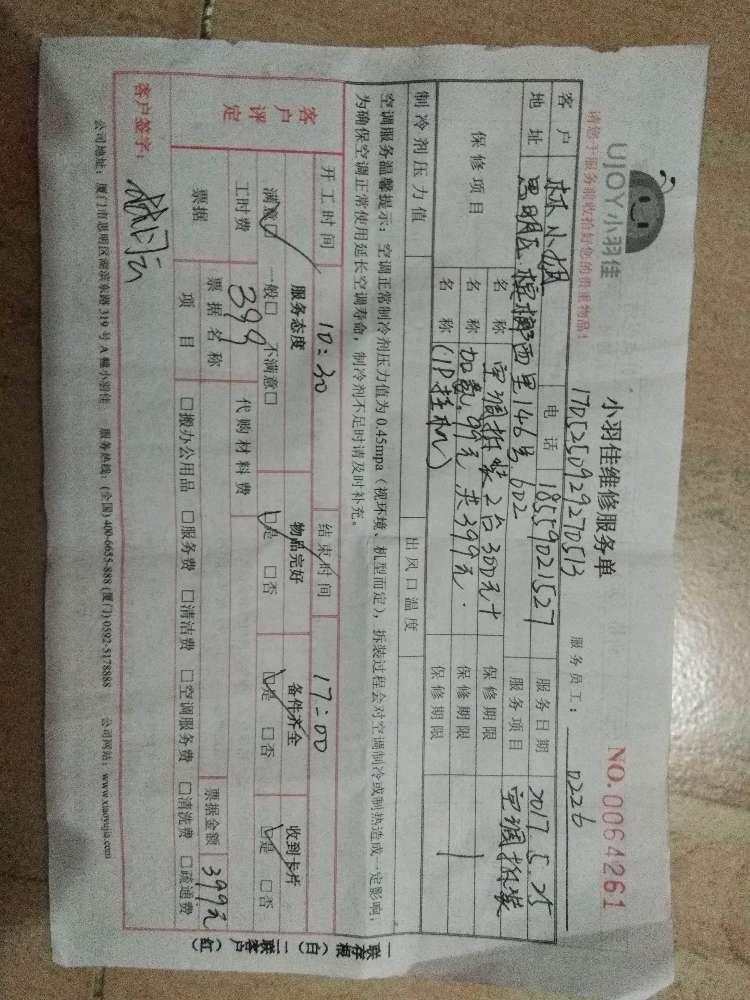 UJOY小羽佳
小羽佳维修服务单
NO.0064261
请您于服务前收拾好您的贵重物品!
1705250929270513
服务员工: 0226
客户 林小姐 电话 18559021527 服务日期 2017.5.25
地址 思明区.槟榔西里146号602 服务项目 空调拆装
保修项目 名称 空调拆装2台300元+ 保修期限
名称 加氨.99元 共399元. 保修期限
名称 (1P挂机) 保修期限
制冷剂压力值 出风口温度
空调服务温馨提示:空调正常制冷剂压力值为0.45mpa(视环境、机型而定),拆装过程会对空调制冷或制热造成一定影响,
为确保空调正常使用延长空调寿命,制冷剂不足时请及时补充。
开工时间 10:30 结束时间 17:00
客户评定 服务态度 物品完好 备件齐全 收到卡片
满意□ 一般□ 不满意□ □是 □否 □是 □否 □是 □否
工时费 399 代购材料费
票据 票据名称 票据金额 399元
项目 □搬办公用品 □服务费 □清洁费 □空调服务费 □清洗费 □疏通费
客户签字:
公司地址:厦门市思明区湖滨东路319号A幢小羽佳 服务热线:(全国)400-6655-888 (厦门)0592-5178888 公司网站:www.xiaoyujia.com
一联存根(白) 二联客户(红)